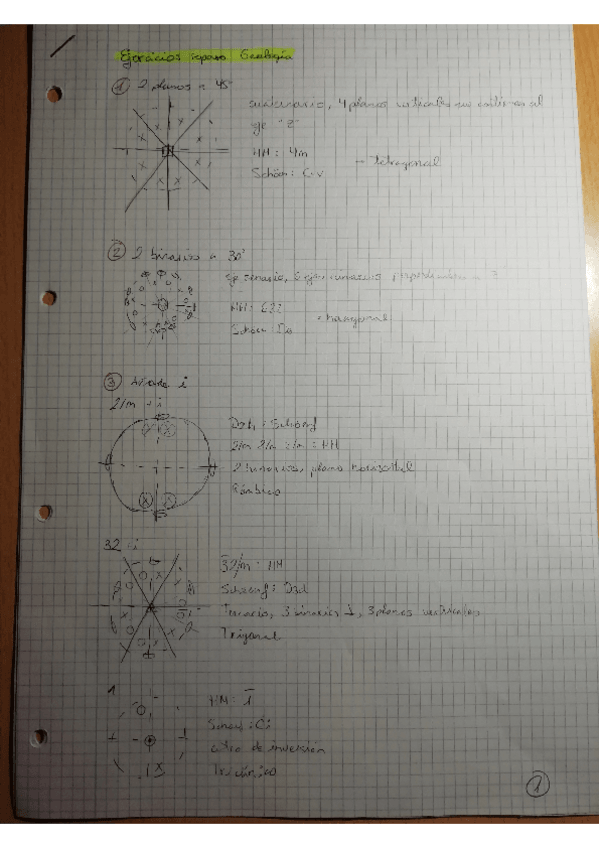 Ejercicios repaso Geología
① 2 planos a 45°
cuaternario, 4 planos verticales que contienen al
eje "z"
HH: 4m
Schön: C4v
→ tetragonal
② 2 binarios a 30°
eje senario, 6 ejes binarios perpendiculares a
HH: 622
Schön: D6
→ hexagonal
③ Añade i
2/m + i
D2h: Schönf
2/m 2/m 2/m: HH
2 binarios, plano horizontal
Rómbico
32 + i
3̄2/m: HH
Schoenf: D3d
Ternario, 3 binarios ⊥, 3 planos verticales
Trigonal
1
HM: 1̄
Schoenf: Ci
centro de inversión
Triclínico
①